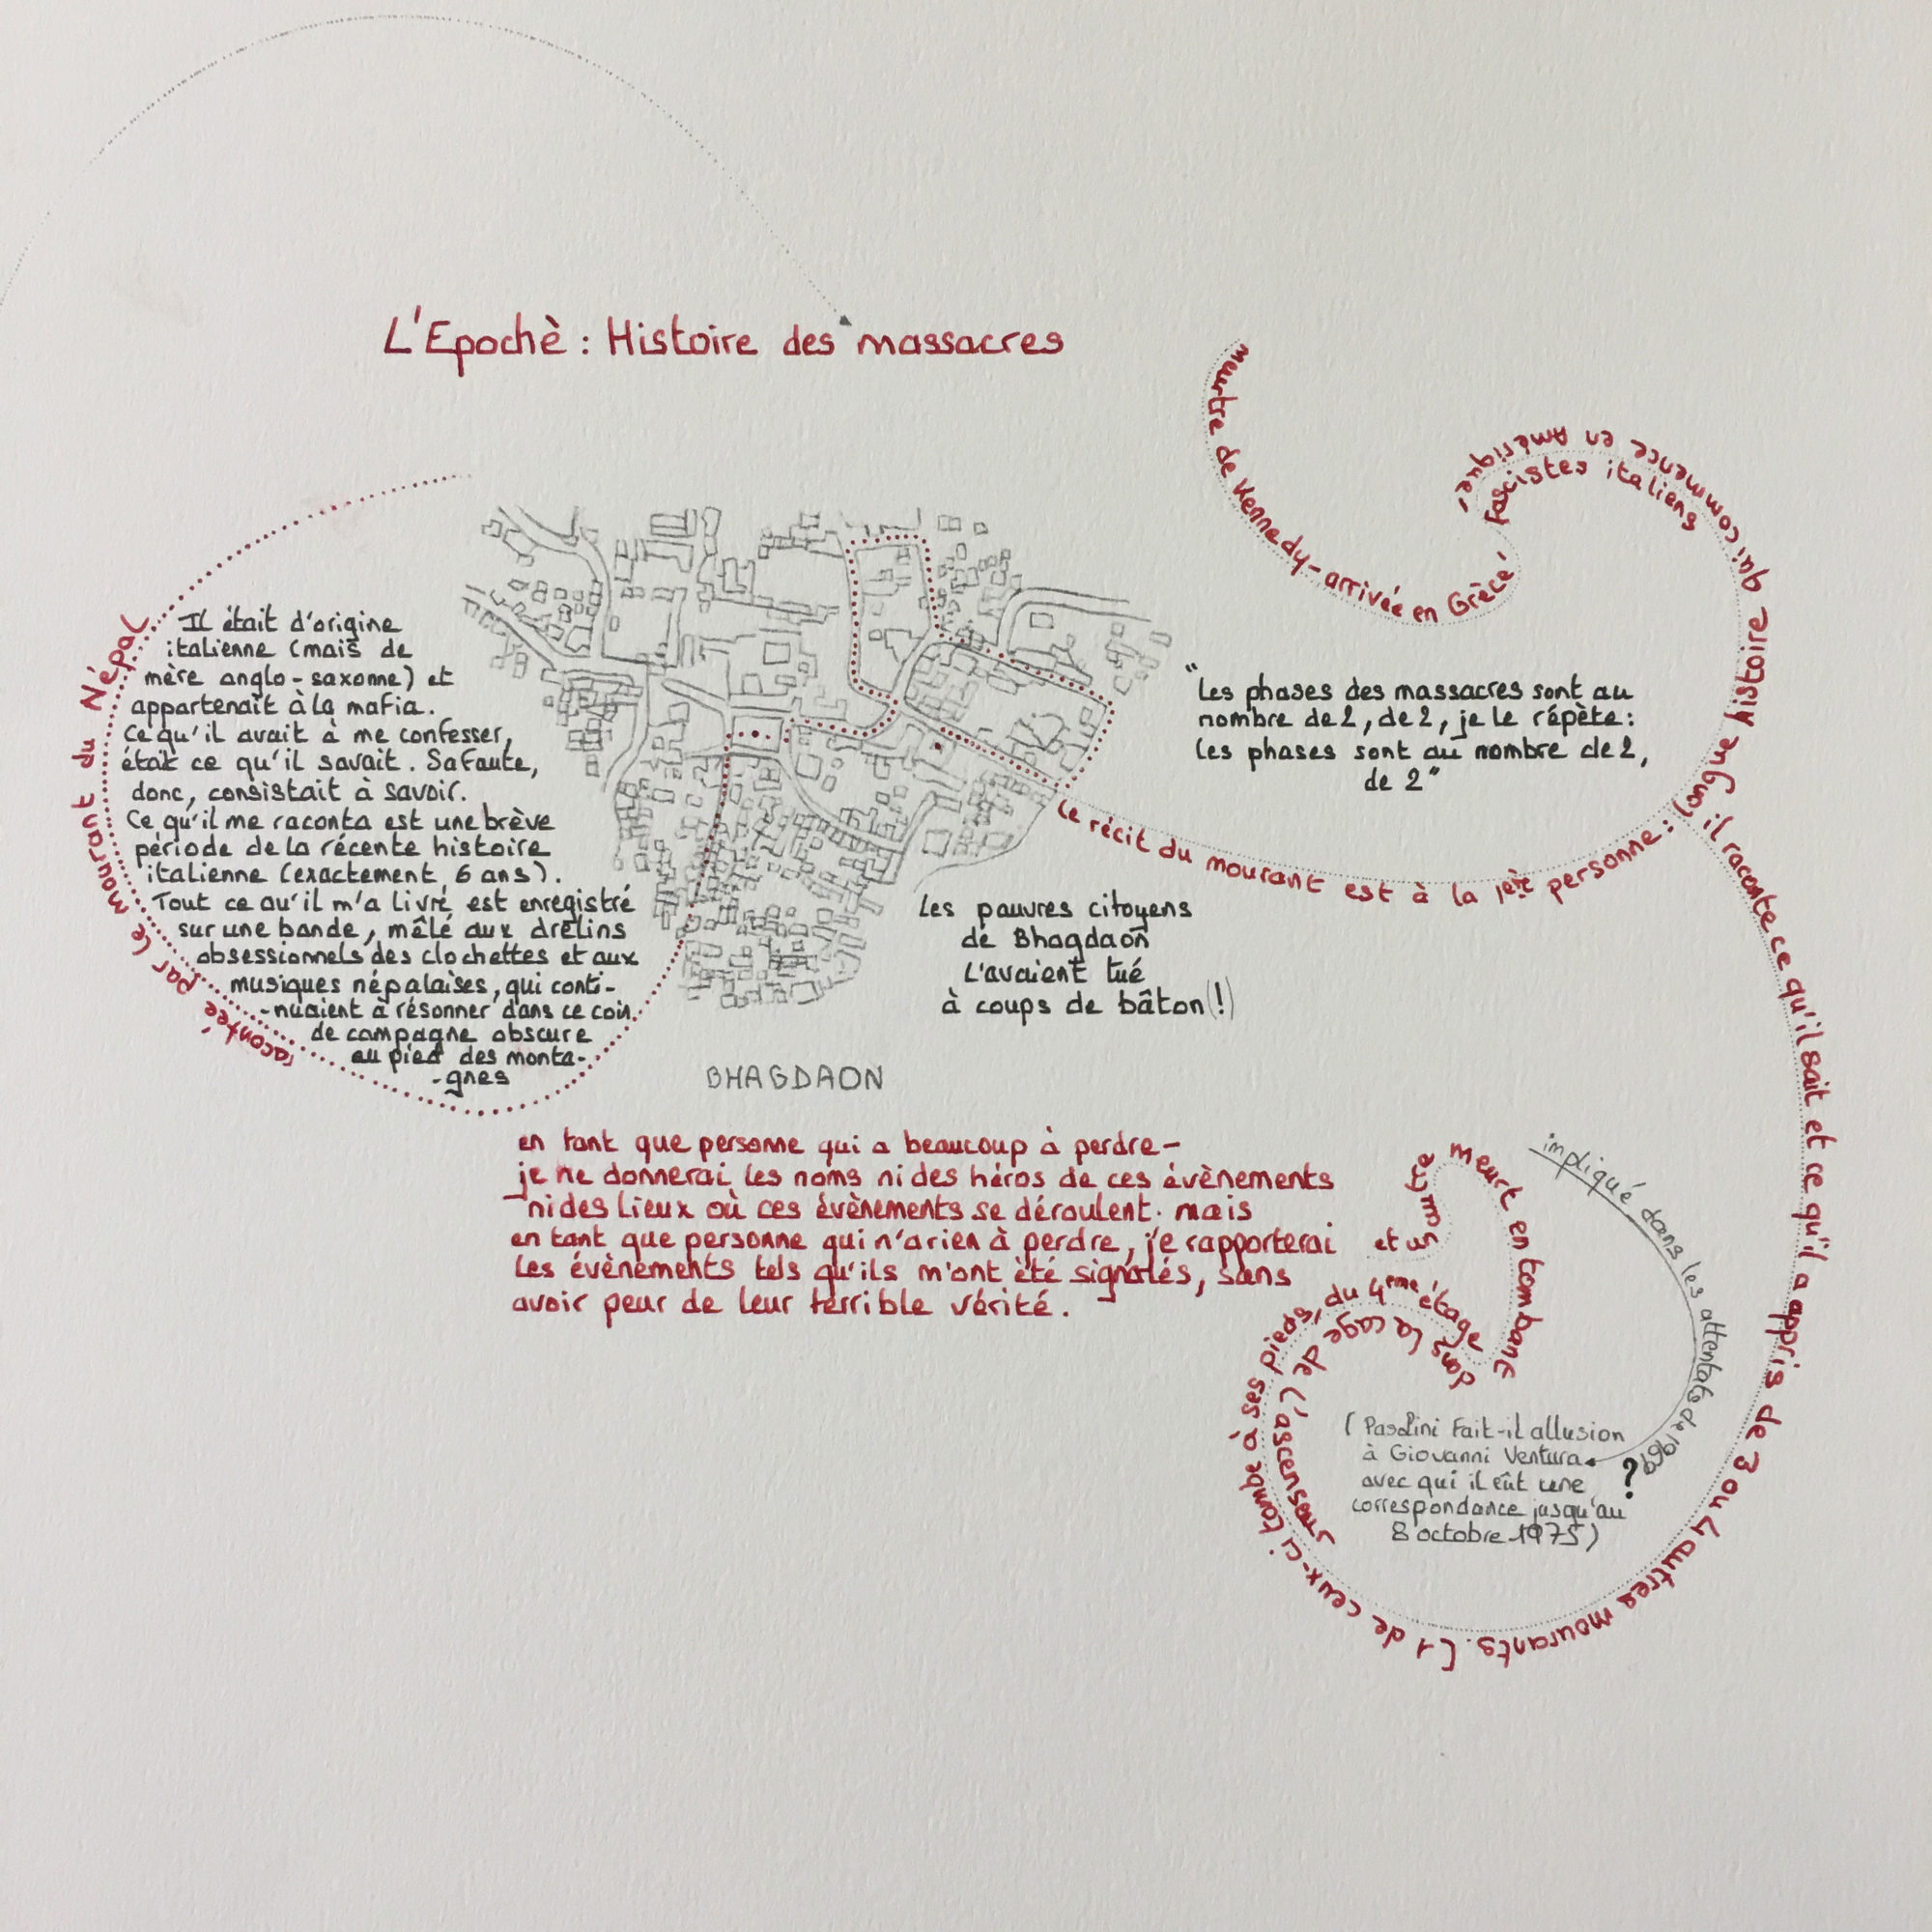 L'Epochè : Histoire des massacres
raconté par le mourant du Népal
Il était d'origine
italienne (mais de
mère anglo-saxonne) et
appartenait à la mafia.
Ce qu'il avait à me confesser,
était ce qu'il savait. Sa faute,
donc, consistait à savoir.
Ce qu'il me raconta est une brève
période de la récente histoire
italienne (exactement, 6 ans).
Tout ce qu'il m'a livré est enregistré
sur une bande, mêlé aux drelins
obsessionnels des clochettes et aux
musiques népalaises, qui conti-
-nuaient à résonner dans ce coin
de campagne obscure
au pied des monta-
-gnes
Les pauvres citoyens
de Bhagdaon
l'avaient tué
à coups de bâton (!)
BHAGDAON
"Les phases des massacres sont au
nombre de 2, de 2, je le répète :
les phases sont au nombre de 2,
de 2"
Le récit du mourant est à la 1ère personne : longue histoire qui commence en Amérique,
Fascistes italiens
meurtre de Kennedy - arrivée en Grèce,
il raconte ce qu'il sait et ce qu'il a appris de 3 ou 4 autres mourants. [1 de ceux-ci tombe à ses pieds, du 4ème étage
et un autre meurt en tombant
dans la cage de l'ascenseur
impliqué dans les attentats de 1969
( Pasolini fait-il allusion
à Giovanni Ventura
avec qui il eût une
correspondance jusqu'au
8 octobre 1975)
?
en tant que personne qui a beaucoup à perdre -
je ne donnerai les noms ni des héros de ces évènements
ni des lieux où ces évènements se déroulent. mais
en tant que personne qui n'a rien à perdre, je rapporterai
les évènements tels qu'ils m'ont été signalés, sans
avoir peur de leur terrible vérité.